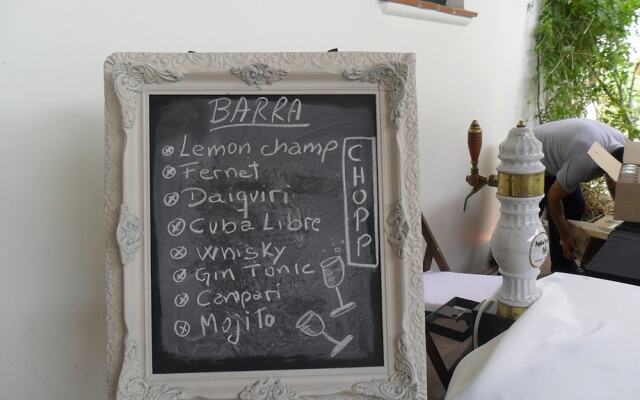 BARRA
Lemon champ
Fernet
Daiquiri
Cuba Libre
Whisky
Gin Tonic
Campari
Mojito
CHOPP